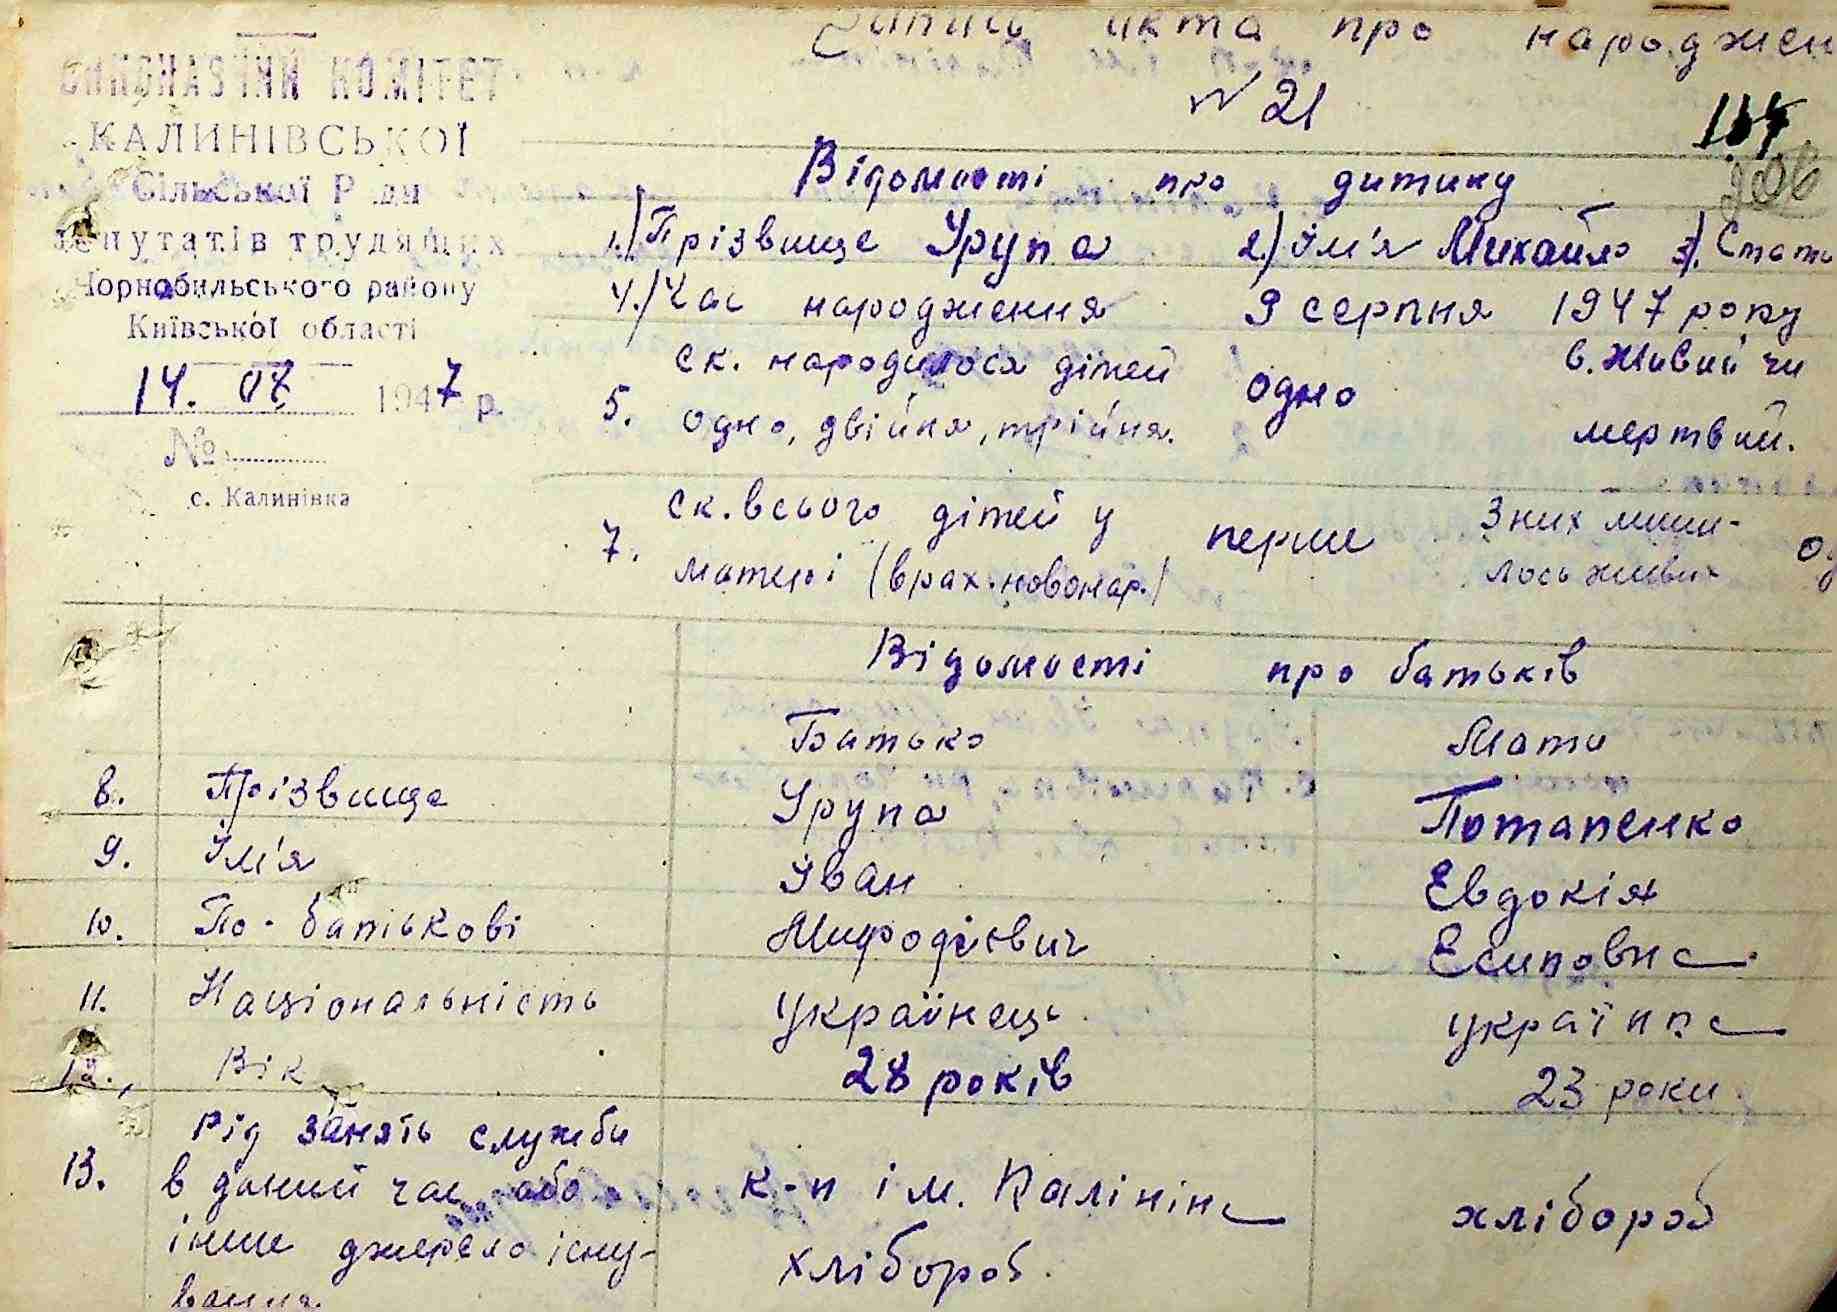 Запись акта про народжен
№ 21
ВИКОНАВЧИЙ КОМІТЕТ
КАЛИНІВСЬКОЇ
Сільської Ради
депутатів трудящих
Чорнобильського району
Київської області
14. 08 1947 р.
№
с. Калинівка
Відомості про дитину
1.) Прізвище Урупа 2.) Ім'я Михайло 3). Стать
4.) Час народження 9 серпня 1947 року
5. ск. народилося дітей одно, двійня, трійня. одно
в. Живий чи мертвий.
7. ск. всього дітей у матері (врах. новонар.) перше
З них лиши-
лось живих
Відомості про батьків
Батько Мати
8. Прізвище Урупа Потапенко
9. Ім'я Іван Евдокія
10. По-батькові Мифодієвич Есиповна
11. Національність Українець українка
12., Вік 28 років 23 роки
13. Рід занять служби
в даний час або к-п ім. Калініна хлібороб
інше джерело існу- хлібороб.
вання.